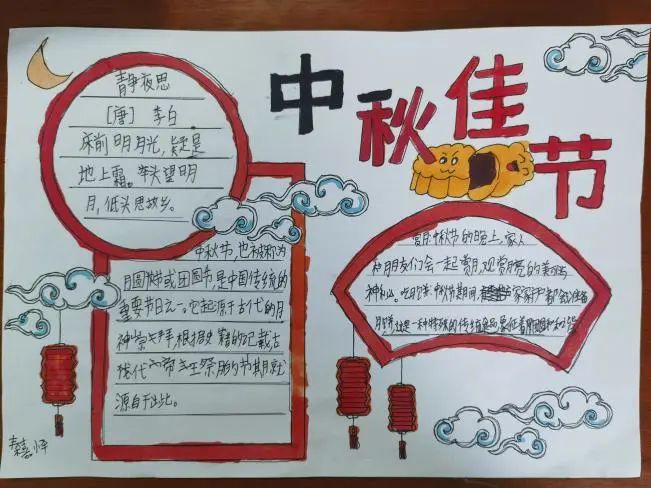 中秋佳节
静夜思
[唐] 李白
床前明月光，疑是
地上霜。举头望明
月，低头思故乡。
中秋节，也被称为
月圆节或团圆节是中国传统的
重要节日之一。它起源于古代的月
神崇拜根据史籍的记载古
代帝王祭月的节期就
源自于此。
赏月:中秋节的晚上,家人
和朋友们会一起赏月,观赏月亮的美丽与
神秘。吃月饼:中秋节期间,家家户户都会准备
月饼,这是一种特殊的传统食品,象征着团圆和
秦